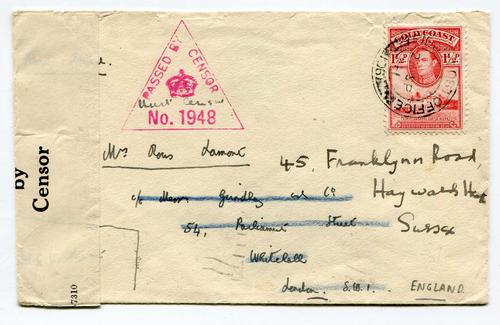 by
Censor
7310
PASSED BY CENSOR
No. 1948
GOLD COAST
1½D
1½D
OFFICE
Mrs Lamont
45, Franklynn Road,
Haywards
Sussex
c/o Messrs Grindlay & Co
54, Parliament Street
Whitehall
London. S.W.1. ENGLAND